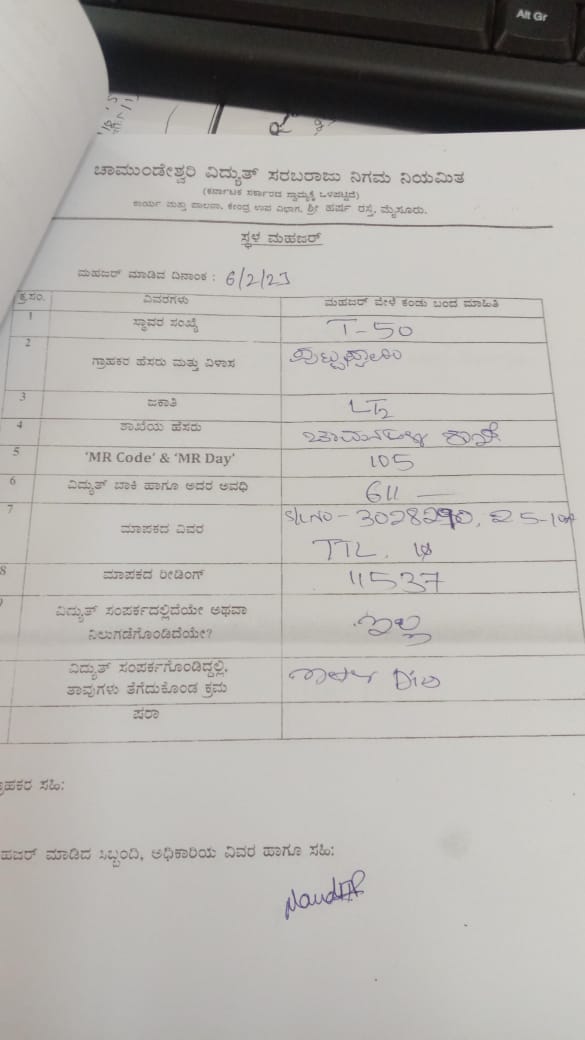 Alt Gr
ಚಾಮುಂಡೇಶ್ವರಿ ವಿದ್ಯುತ್ ಸರಬರಾಜು ನಿಗಮ ನಿಯಮಿತ
(ಕರ್ನಾಟಕ ಸರ್ಕಾರದ ಸ್ವಾಮ್ಯಕ್ಕೆ ಒಳಪಟ್ಟಿದೆ)
ಕಾರ್ಯ ಮತ್ತು ಪಾಲನಾ, ಕೇಂದ್ರ ಉಪ ವಿಭಾಗ, ಶ್ರೀ ಹರ್ಷ ರಸ್ತೆ, ಮೈಸೂರು.
ಸ್ಥಳ ಮಹಜರ್
ಮಹಜರ್ ಮಾಡಿದ ದಿನಾಂಕ : 6/2/23
ಕ್ರ.ಸಂ. ವಿವರಗಳು ಮಹಜರ್ ವೇಳೆ ಕಂಡು ಬಂದ ಮಾಹಿತಿ
1 ಸ್ಥಾವರ ಸಂಖ್ಯೆ T-50
2 ಗ್ರಾಹಕರ ಹೆಸರು ಮತ್ತು ವಿಳಾಸ
3 ಜಕಾತಿ LT2
4 ಶಾಖೆಯ ಹೆಸರು
5 'MR Code' & 'MR Day' 105
6 ವಿದ್ಯುತ್ ಬಾಕಿ ಹಾಗೂ ಅದರ ಅವಧಿ 611 —
7 ಮಾಪಕದ ವಿವರ
TTL.
8 ಮಾಪಕದ ರೀಡಿಂಗ್ 11537
ವಿದ್ಯುತ್ ಸಂಪರ್ಕದಲ್ಲಿದೆಯೇ ಅಥವಾ
ನಿಲುಗಡೆಗೊಂಡಿದೆಯೇ? ಇಲ್ಲ
ವಿದ್ಯುತ್ ಸಂಪರ್ಕಗೊಂಡಿದ್ದಲ್ಲಿ,
ತಾವುಗಳು ತೆಗೆದುಕೊಂಡ ಕ್ರಮ
ಷರಾ
ಗ್ರಾಹಕರ ಸಹಿ:
ಮಹಜರ್ ಮಾಡಿದ ಸಿಬ್ಬಂದಿ, ಅಧಿಕಾರಿಯ ವಿವರ ಹಾಗೂ ಸಹಿ: